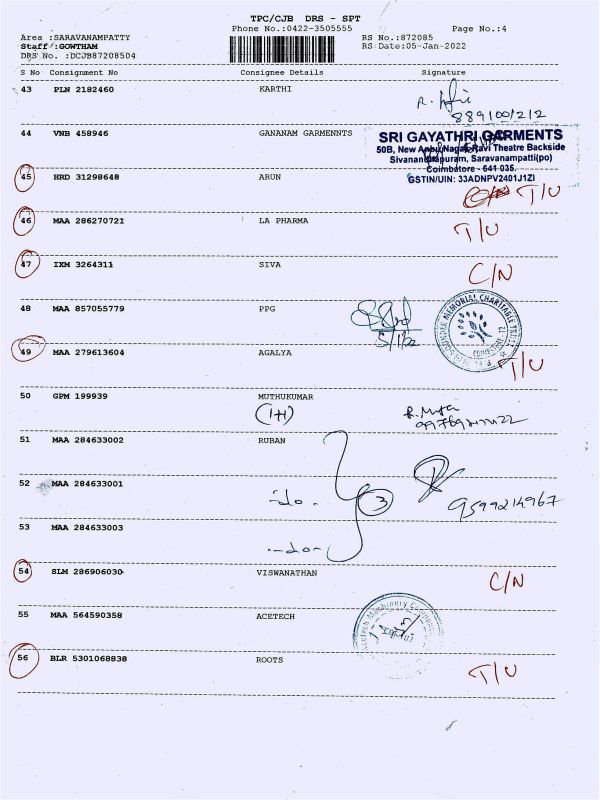 TPC/CJB DRS - SPT
Phone No.:0422-3505555
Page No.:4
Area :SARAVANAMPATTY
RS No.:872085
Staff :GOWTHAM
RS Date:05-Jan-2022
DRS No. :DCJB87208504
S No Consignment No Consignee Details Signature
43 PLN 2182460 KARTHI
44 VNB 458946 GANANAM GARMENNTS
SRI GAYATHRI GARMENTS
50B, New Anbu Nagar, Ravi Theatre Backside
Sivanandapuram, Saravanampatti(po)
Coimbatore - 641 035.
GSTIN/UIN: 33ADNPV2401J1ZI
45 HRD 31298648 ARUN
T/U
46 MAA 286270721 LA PHARMA
T/U
47 IXM 3264311 SIVA
C/N
48 MAA 857055779 PPG
MEMORIAL CHARITABLE TRUST
49 MAA 279613604 AGALYA
T/U
50 GPM 199939 MUTHUKUMAR
(1+1)
51 MAA 284633002 RUBAN
52 MAA 284633001
-do-
3
9599214967
53 MAA 284633003
-do-
54 SLM 286906030 VISWANATHAN
C/N
55 MAA 564590358 ACETECH
56 BLR 5301068838 ROOTS
T/U